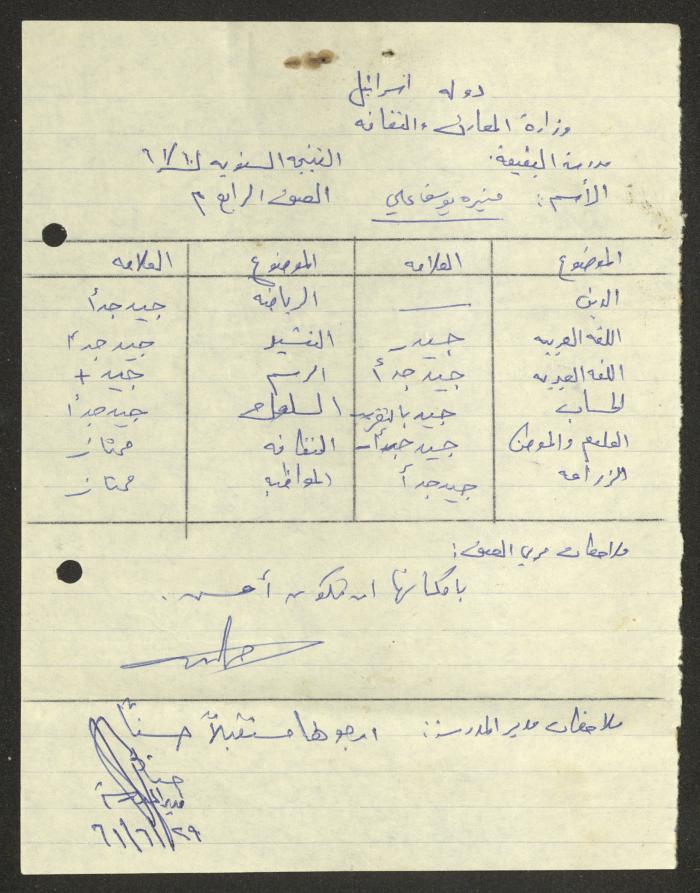 دولة اسرائيل
وزارة المعارف والثقافه
مدرسة البقيعة: النتيجه السنويه لسنة ٦١/٦٠
الأسم: منيره يوسف علي الصف الرابع م
الموضوع العلامه الموضوع العلامه
الدين — الرياضه جيد جداً
اللغه العربيه جيد - التمثيل جيد جداً
اللغه العبريه جيد جداً الرسم جيد +
الحساب جيد بالتقريب السلوك جيد جداً
العلوم والموطن جيد جداً - النظافه ممتاز
الزراعه جيد جداً المواظبه ممتاز
ملاحظات مربي الصف:
بامكانها ان تكون أحسن.
ملاحظات مدير المدرسة: ارجو لها مستقبلاً حسناً
مدير المدرسة
٦١/٦/٢٩